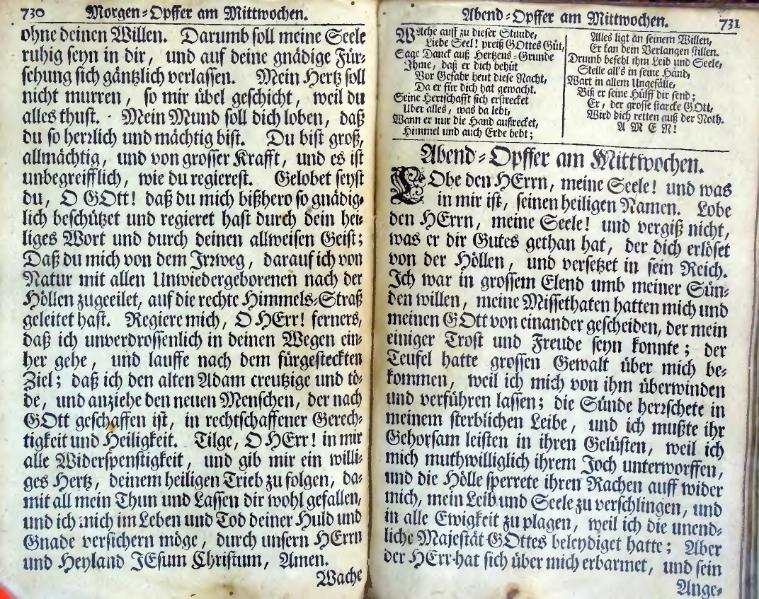 730 Morgen-Opffer am Mittwochen.
ohne deinen Willen. Darumb soll meine Seele
ruhig seyn in dir, und auf deine gnädige Für-
sehung sich gäntzlich verlassen. Mein Hertz soll
nicht murren, so mir übel geschicht, weil du
alles thust. Mein Mund soll dich loben, daß
du so herrlich und mächtig bist. Du bist groß,
allmächtig, und von grosser Krafft, und es ist
unbegreifflich, wie du regierest. Gelobet seyst
du, O GOtt! daß du mich bißhero so gnädig-
lich beschützet und regieret hast durch dein hei-
liges Wort und durch deinen allweisen Geist;
Daß du mich von dem Irrweg, darauf ich von
Natur mit allen Unwiedergeborenen nach der
Höllen zugeeilet, auf die rechte Himmels-Straß
geleitet hast. Regiere mich, O HErr! ferners,
daß ich unverdrossenlich in deinen Wegen ein-
her gehe, und lauffe nach dem fürgesteckten
Ziel; daß ich den alten Adam creutzige und tö-
de, und anziehe den neuen Menschen, der nach
GOtt geschaffen ist, in rechtschaffener Gerech-
tigkeit und Heiligkeit. Tilge, O HErr! in mir
alle Widerspenstigkeit, und gib mir ein willi-
ges Hertz, deinem heiligen Trieb zu folgen, da-
mit all mein Thun und Lassen dir wohl gefallen,
und ich mich im Leben und Tod deiner Huld und
Gnade versichern möge, durch unsern HErrn
und Heyland JEsum Christum, Amen.
Wache
Abend-Opffer am Mittwochen. 731
WAche auff zu dieser Stunde,
Liebe Seel! preiß GOttes Güt,
Sage Danck auß Hertzens-Grunde
Ihme, daß er dich behüt
Vor Gefahr heut diese Nacht,
Da er für dich hat gewacht.
Seine Herrschafft sich erstrecket
Uber alles, was da lebt,
Wann er nur die Hand außrecket,
Himmel und auch Erde bebt;
Alles ligt an seinem Willen,
Er kan dein Verlangen stillen.
Drumb befehl ihm Leib und Seele,
Stelle all's in seine Hand,
Wart in allem Ungefälle,
Biß er seine Hülff dir send;
Er, der grosse starcke GOtt,
Wird dich retten auß der Noth.
A M E N!
Abend-Opffer am Mittwochen.
LObe den HErrn, meine Seele! und was
in mir ist, seinen heiligen Namen. Lobe
den HErrn, meine Seele! und vergiß nicht,
was er dir Gutes gethan hat, der dich erlöset
von der Höllen, und versetzet in sein Reich.
Ich war in grossem Elend umb meiner Sün-
den willen, meine Missethaten hatten mich und
meinen GOtt von einander gescheiden, der mein
einiger Trost und Freude seyn konnte; der
Teufel hatte grossen Gewalt über mich be-
kommen, weil ich mich von ihm überwinden
und verführen lassen; die Sünde herrschete in
meinem sterblichen Leibe, und ich mußte ihr
Gehorsam leisten in ihren Gelüsten, weil ich
mich muthwilliglich ihrem Joch unterworffen,
und die Hölle sperrete ihren Rachen auff wider
mich, mein Leib und Seele zu verschlingen, und
in alle Ewigkeit zu plagen, weil ich die unend-
liche Majestät GOttes beleydiget hatte; Aber
der HErr hat sich über mich erbarmet, und sein
Ange-